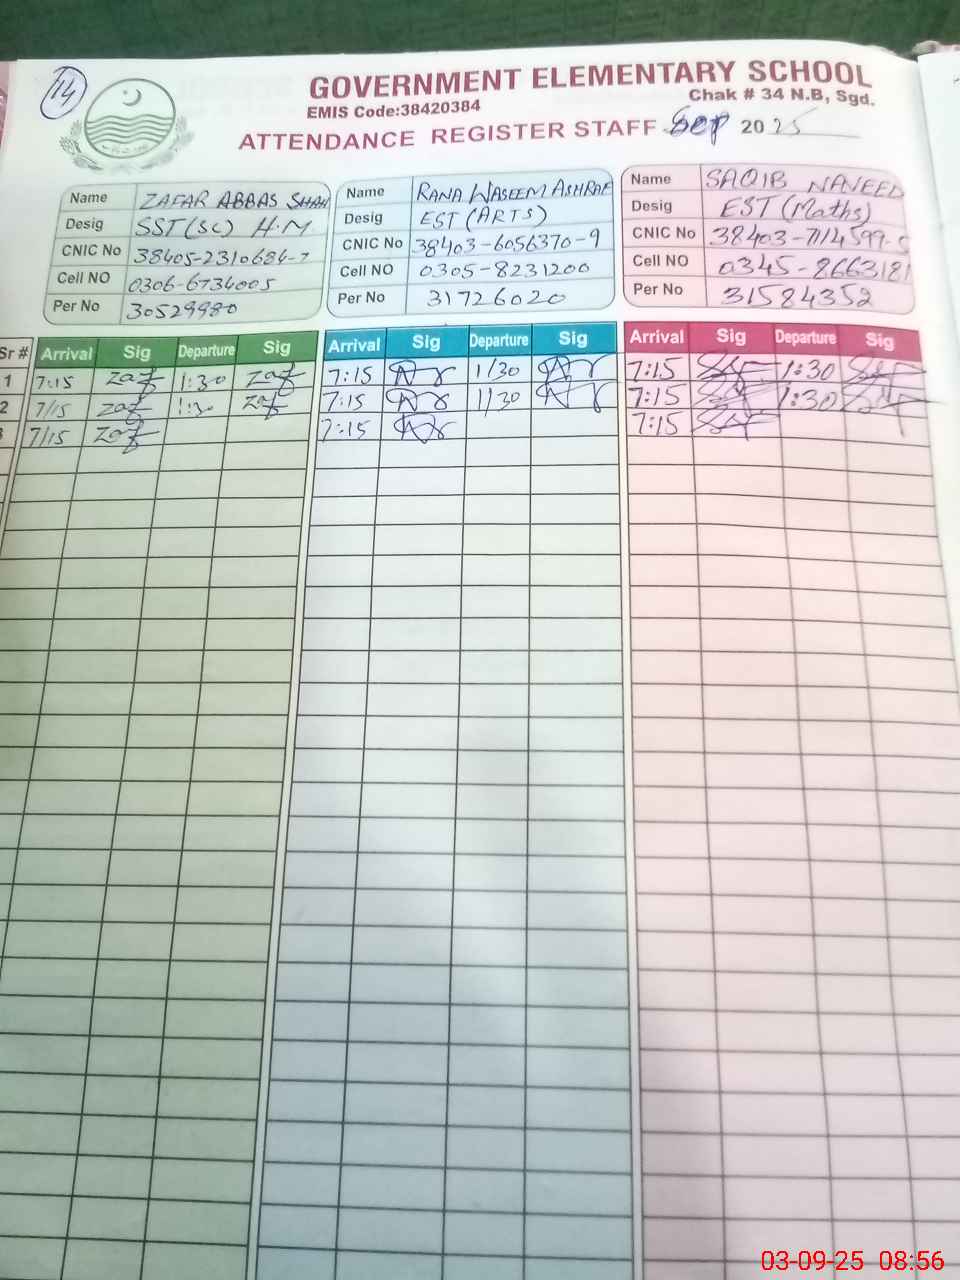 14
GOVERNMENT ELEMENTARY SCHOOL
EMIS Code:38420384 Chak # 34 N.B, Sgd.
ATTENDANCE REGISTER STAFF Sep 2025
Name ZAFAR ABBAS SHAH
Desig SST(SC) H.M
CNIC No 38405-2310684-7
Cell NO 0306-6734005
Per No 30529980
Name RANA WASEEM ASHRAF
Desig EST (ARTS)
CNIC No 38403-6056370-9
Cell NO 0305-8231200
Per No 31726020
Name SAQIB NAVEED
Desig EST (Maths)
CNIC No 38403-7114599-5
Cell NO 0345-8663181
Per No 31584352
Sr # Arrival Sig Departure Sig Arrival Sig Departure Sig Arrival Sig Departure Sig
1 7:15 Zaf 1:30 Zaf 7:15 1/30 7:15 1:30
2 7/15 Zaf 1:30 Zaf 7:15 1/30 7:15 1:30
3 7/15 Zaf 7:15 7:15
03-09-25 08:56